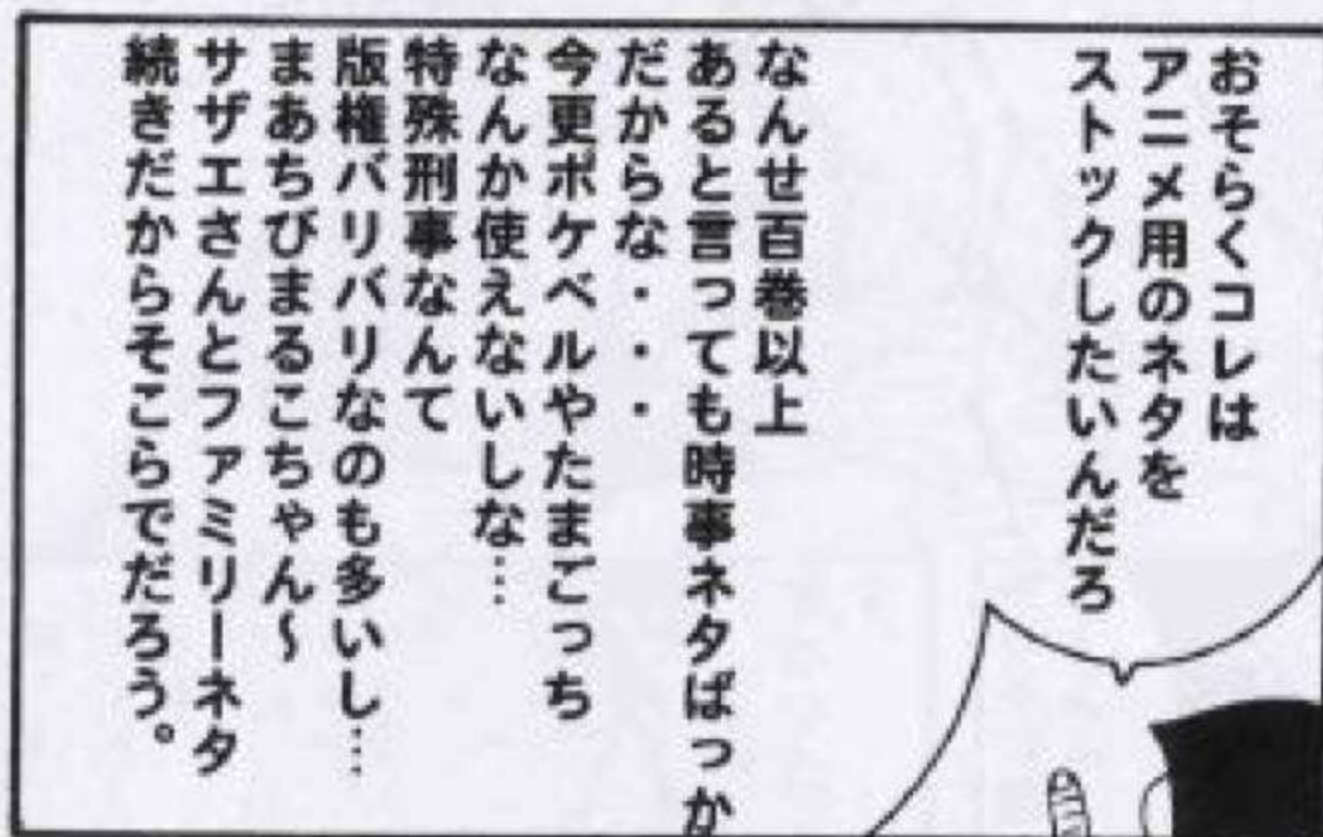 おそらくコレは
アニメ用のネタを
ストックしたいんだろ
なんせ百巻以上
あると言っても時事ネタばっか
だからな・・・
今更ポケベルやたまごっち
なんか使えないしな…
特殊刑事なんて
版権バリバリなのも多いし…
まあちびまるこちゃん～
サザエさんとファミリーネタ
続きだからそこらでだろう。